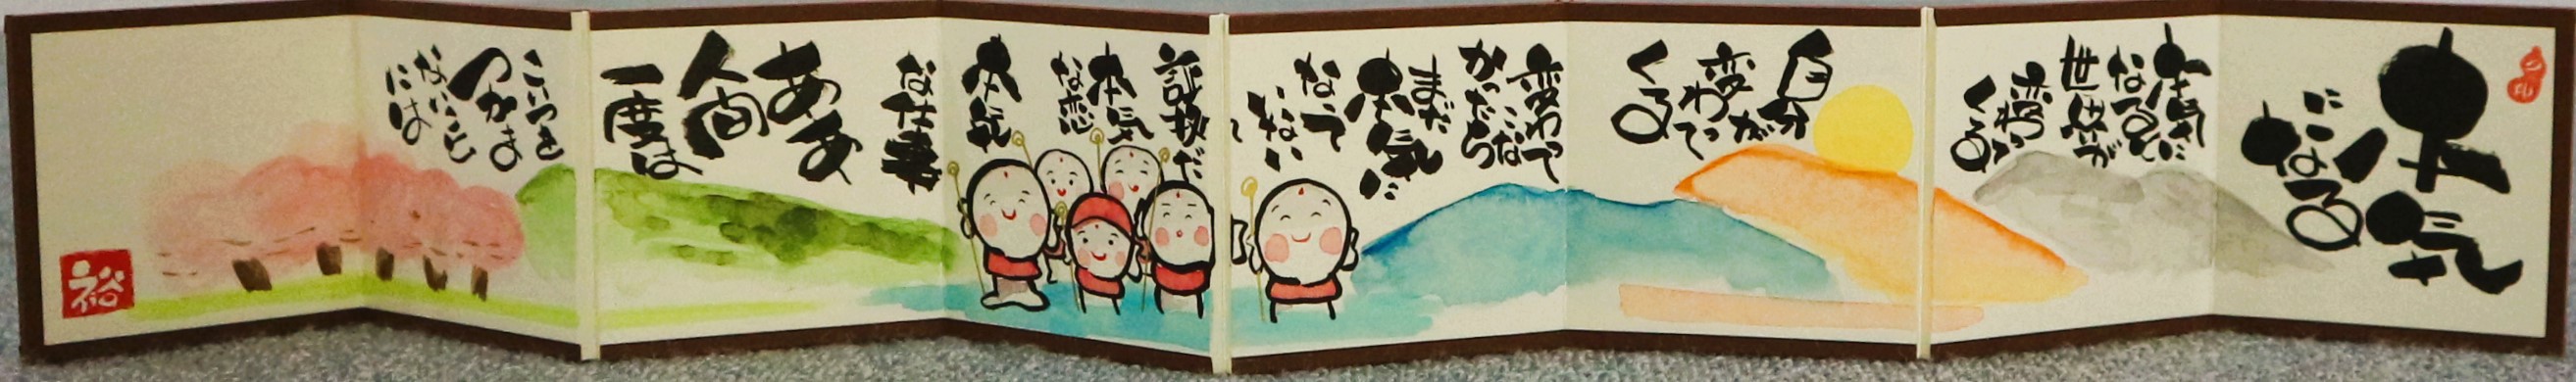 本気
になる
本気に
なると
世界が
変わって
くる
自分
が
変わって
くる
変わって
こな
かったら
まだ
本気に
なって
いない
証拠だ
本気
な恋
本気
な仕事
ああ
人間
一度は
こいつを
つかま
ないこと
には
裕